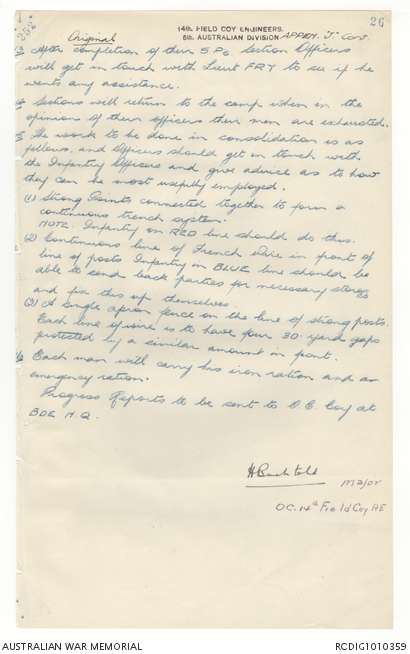 26
252
Original
14th. FIELD COY ENGINEERS.
5th. AUSTRALIAN DIVISION
APPDX. J. Con.
3) After completion of their S.Ps. Section Officers
will get in touch with Lieut FRY to see if he
wants any assistance.
4. Sections will return to the camp when in the
opinions of their officers their men are exhausted.
5 The work to be done in consolidation is as
follows, and Officers should get in touch with
the Infantry Officers and give advice as to how
they can be most usefully employed.
(1) Strong Points connected together to form a
continuous trench system.
NOTE. Infantry on RED line should do this.
(2) Continuous line of French Wire in front of
line of posts Infantry in BLUE line should be
able to send back parties for necessary stores
and fix this up themselves.
(3) A single apron fence on the line of strong posts.
Each line of wire is to have four 30 yard gaps
protected by a similar amount in front.
6 Each man will carry his iron ration and an
emergency ration.
Progress Reports to be sent to O.C. Coy at
BDE H.Q.
Major
OC. 14th Field Coy AE
AUSTRALIAN WAR MEMORIAL
RCDIG1010359